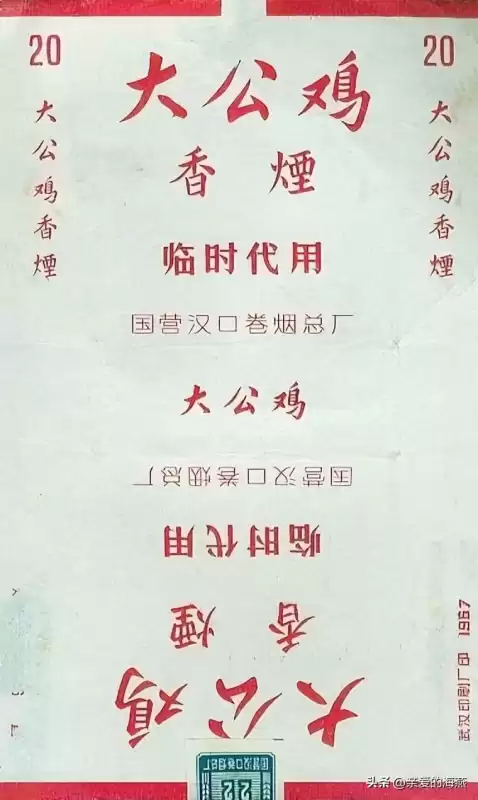 20
20
大公鸡
香煙
大公鸡香煙
大公鸡香煙
临时代用
国营汉口卷烟总厂
大公鸡
国营汉口卷烟总厂
临时代用
香煙
大公鸡
武汉印刷厂印 1967
212
头条 @亲爱的海燕